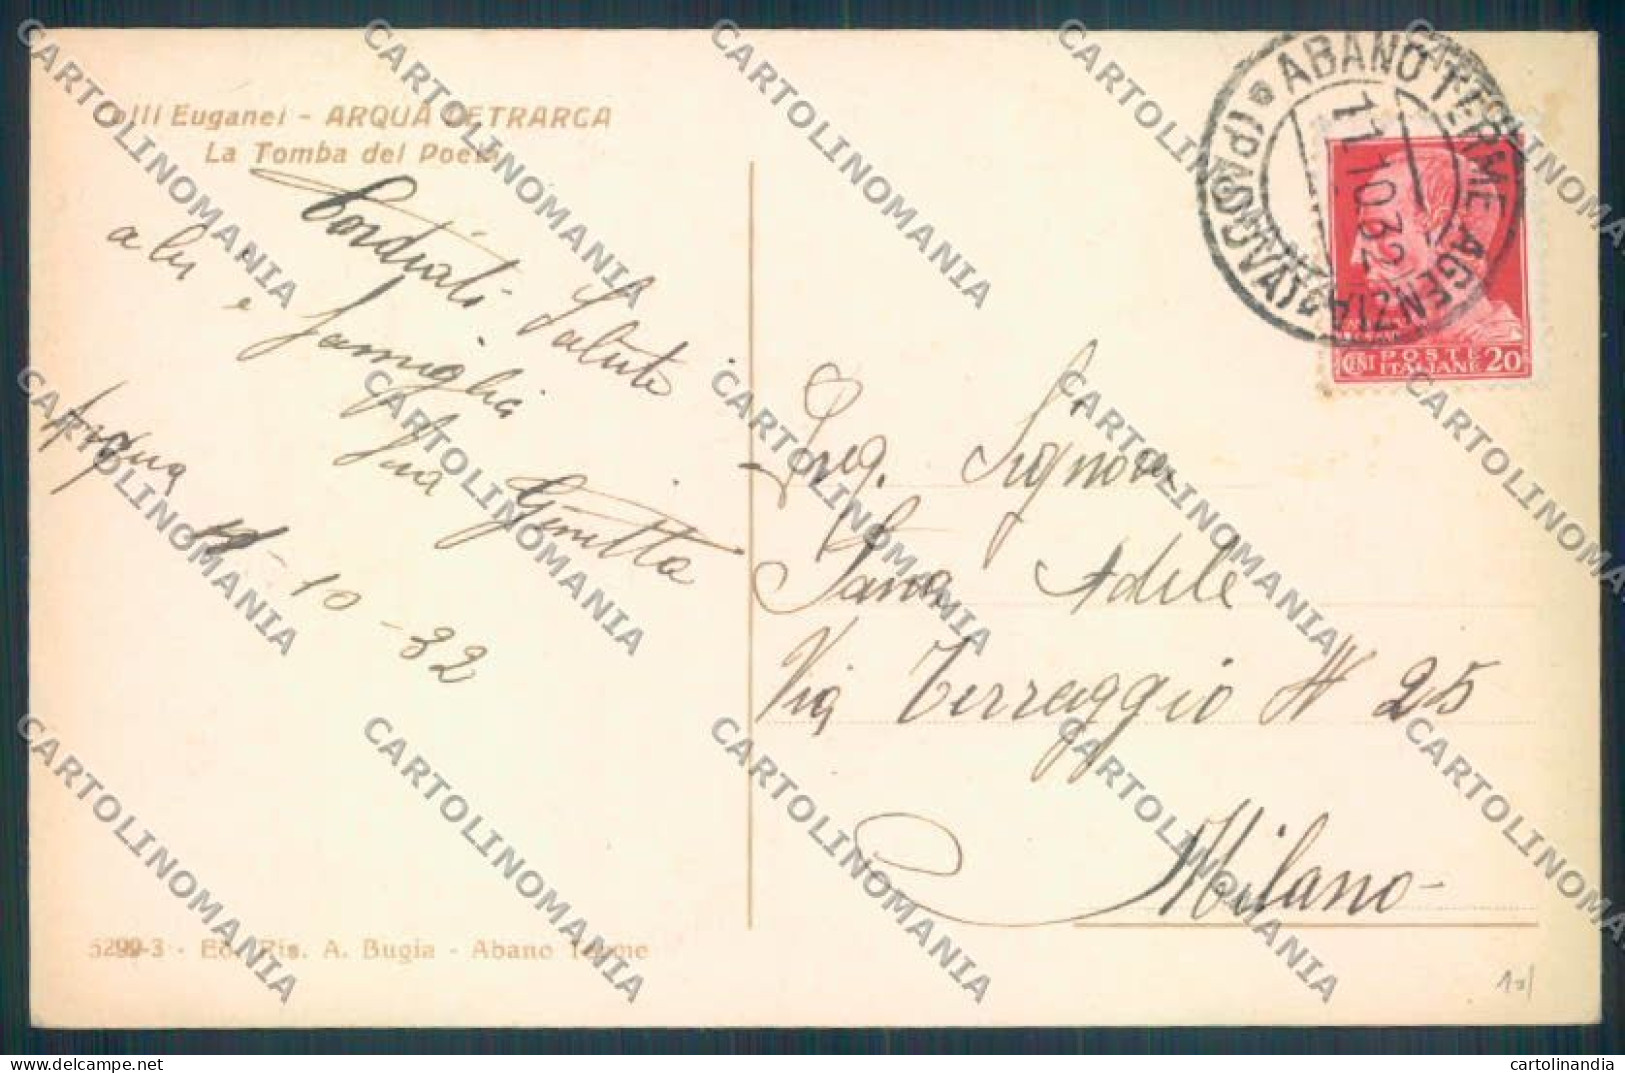 olli Euganei - ARQUÀ PETRARCA
La Tomba del Poeta
Cordiali Saluti
a lei e famiglia
Sua Ginetta
Arquà
10-32
Preg. Signora
Adele
Via Terraggio N 25
Milano
5299-3 - Ed. Ris. A. Bugia - Abano Terme
ABANO TERME AGENZIA (PADOVA)
11.10.32
POSTE
CENT ITALIANE 20
CARTOLINOMANIA
cartolinandia